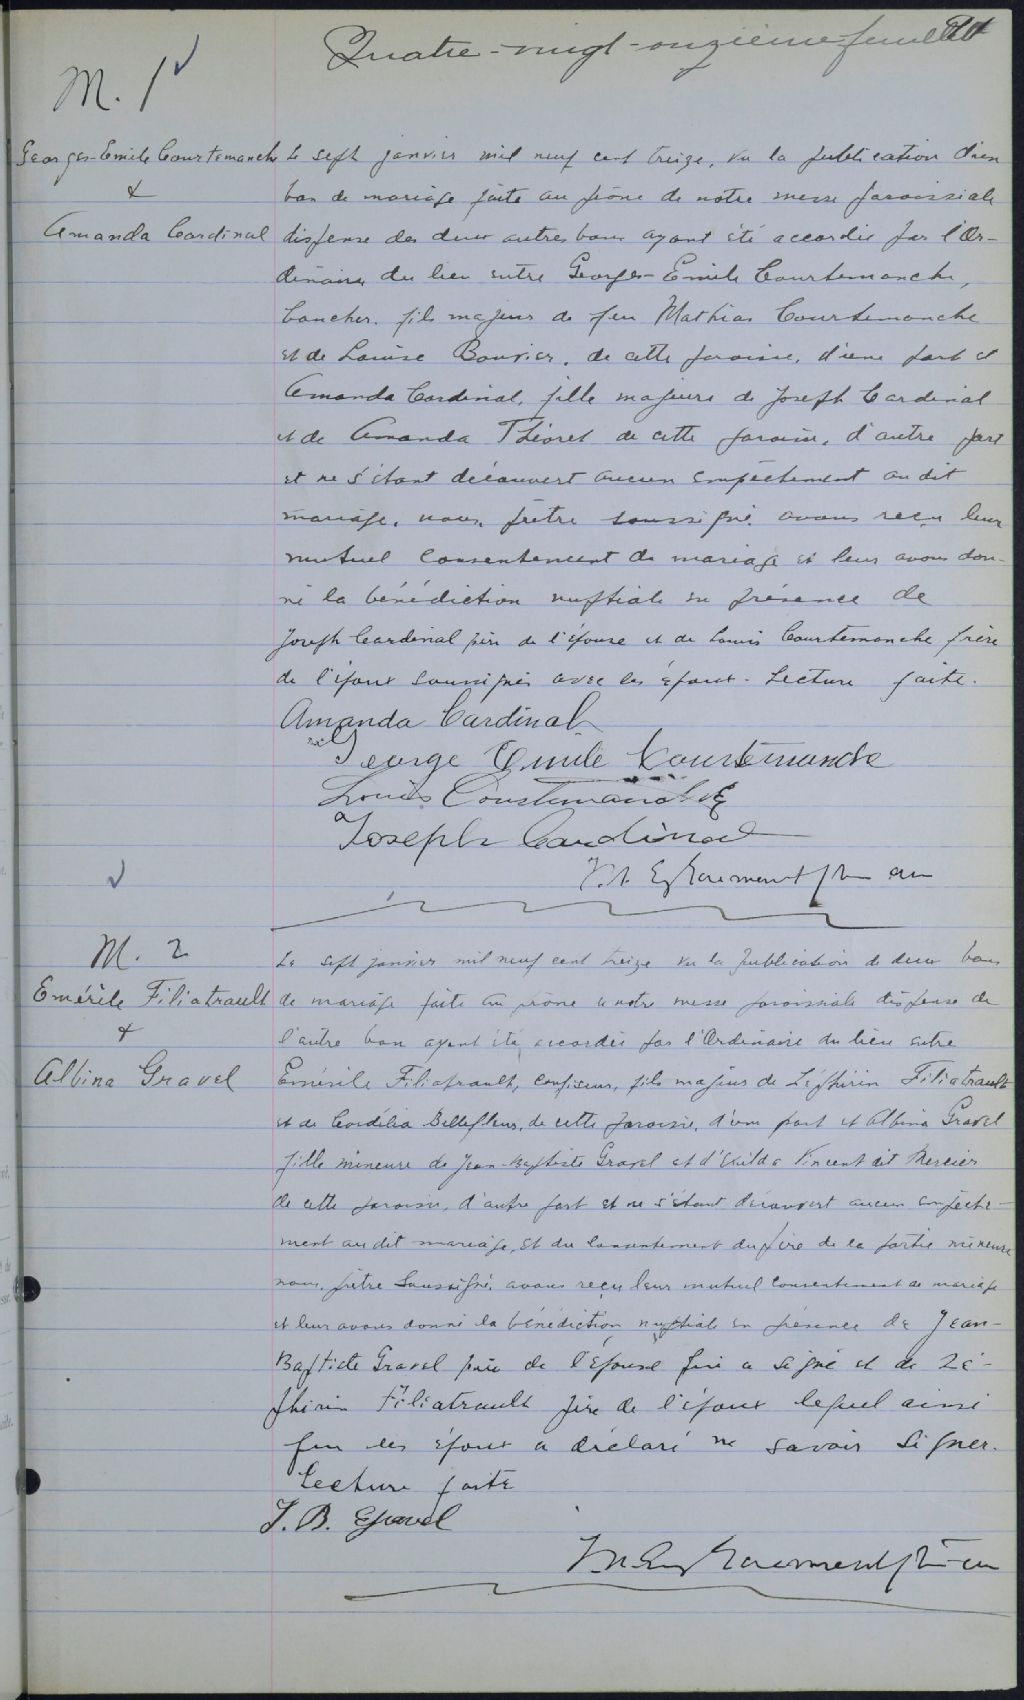 Quatre-vingt-onzième feuillet
M. 1
Georges-Emile Courtemanche
&
Amanda Cardinal
Le sept janvier mil neuf cent treize, vu la publication d'un
ban de mariage faite au prône de notre messe paroissiale
dispense des deux autres bans ayant été accordée par l'Or-
dinaire du lieu entre Georges-Emile Courtemanche,
boucher, fils majeur de feu Mathias Courtemanche
et de Louise Bouvier, de cette paroisse, d'une part et
Amanda Cardinal, fille majeure de Joseph Cardinal
et de Amanda Théoret de cette paroisse, d'autre part
et ne s'étant découvert aucun empêchement au dit
mariage, nous, prêtre soussigné avons reçu leur
mutuel consentement de mariage et leur avons don-
né la bénédiction nuptiale en présence de
Joseph Cardinal père de l'épouse et de Louis Courtemanche frère
de l'époux soussignés avec les époux. Lecture faite.
Amanda Cardinal
George Emile Courtemanche
Louis Courtemanche
Joseph Cardinal
M. 2
Emérile Filiatrault
&
Albina Gravel
Le sept janvier mil neuf cent treize vu la publication de deux bans
de mariage faite au prône à notre messe paroissiale dispense de
l'autre ban ayant été accordée par l'Ordinaire du lieu entre
Emérile Filiatrault, confiseur, fils majeur de Zéphirin Filiatrault
et de Cordélia Bellefleur, de cette paroisse, d'une part et Albina Gravel
fille mineure de Jean-Baptiste Gravel et d'Exilda Vincent dit Mercier
de cette paroisse, d'autre part et ne s'étant découvert aucun empêche-
ment au dit mariage, et du consentement du père de la partie mineure
nous, prêtre soussigné, avons reçu leur mutuel consentement de mariage
et leur avons donné la bénédiction nuptiale en présence de Jean-
Baptiste Gravel père de l'épouse qui a signé et de Zé-
phirin Filiatrault père de l'époux lequel ainsi
que les époux a déclaré ne savoir signer.
Lecture faite
J. B. Gravel